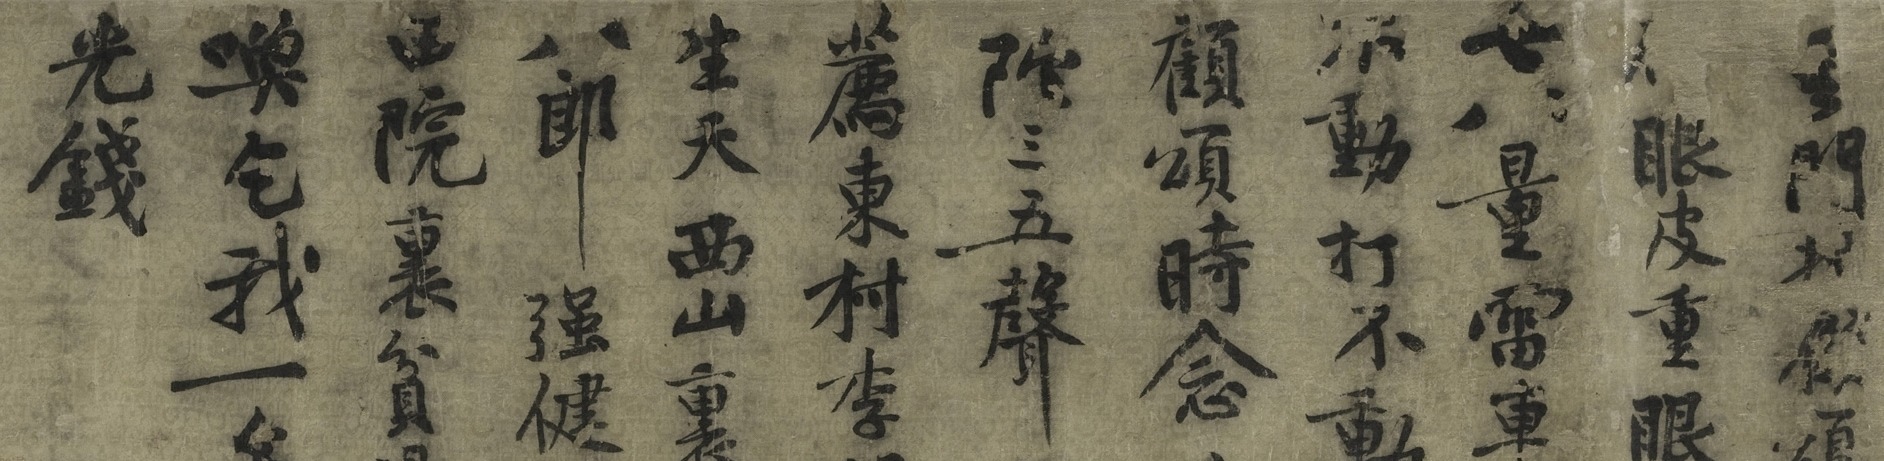 門
眼皮重眼
世八量雷車
不動打不動
顧頌時念
陀三五聲
薦東村李
生天西山裏
八郎强健
田院裏貧
喚乞我一
光錢